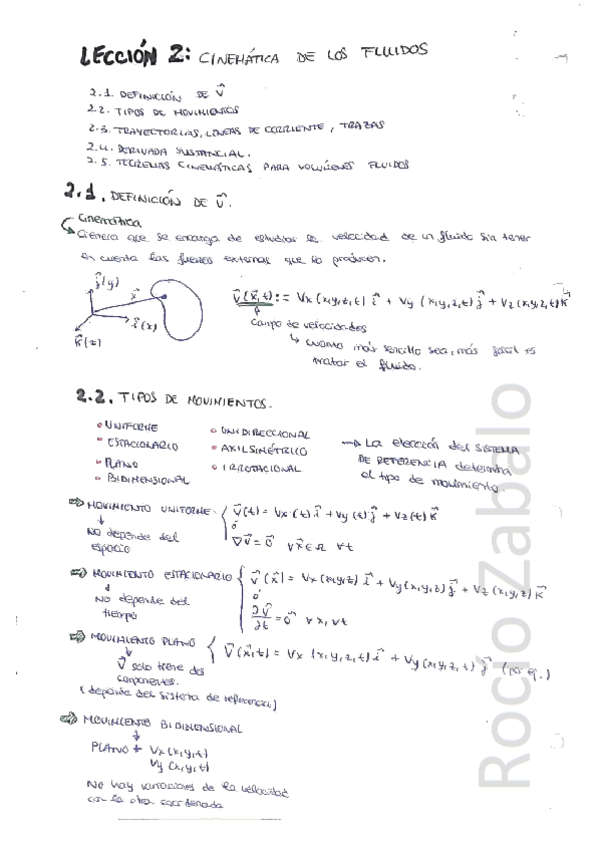 LECCIÓN 2: CINEMÁTICA DE LOS FLUIDOS
2.1. DEFINICIÓN DE v⃗
2.2. TIPOS DE MOVIMIENTOS
2.3. TRAYECTORIAS, LÍNEAS DE CORRIENTE, TRAZAS
2.4. DERIVADA SUSTANCIAL.
2.5. TEOREMAS CINEMÁTICAS PARA VOLÚMENES FLUIDOS
2.1. DEFINICIÓN DE v⃗.
Cinemática
Ciencia que se encarga de estudiar la velocidad de un fluido sin tener
en cuenta las fuerzas externas que lo producen.
j⃗(y)
x⃗
i⃗(x)
k⃗(z)
v⃗(x⃗,t) := Vx(x,y,z,t) i⃗ + Vy(x,y,z,t) j⃗ + Vz(x,y,z,t) k⃗
campo de velocidades
↳ cuanto más sencillo sea, más fácil es
tratar el fluido.
2.2. TIPOS DE MOVIMIENTOS.
• UNIFORME
• ESTACIONARIO
• PLANO
• BIDIMENSIONAL
• UNIDIRECCIONAL
• AXILSIMÉTRICO
• IRROTACIONAL
→ La elección del SISTEMA
DE REFERENCIA determina
el tipo de movimiento.
⇒ MOVIMIENTO UNIFORME: { v⃗(t) = Vx(t) i⃗ + Vy(t) j⃗ + Vz(t) k⃗
ó
∇v⃗ = 0⃗ ∀x⃗∈Ω ∀t
↓
NO depende del
espacio
⇒ MOVIMIENTO ESTACIONARIO { v⃗(x⃗) = Vx(x,y,z) i⃗ + Vy(x,y,z) j⃗ + Vz(x,y,z) k⃗
ó
∂v⃗/∂t = 0⃗ ∀x, ∀t
↓
NO depende del
tiempo
⇒ MOVIMIENTO PLANO { v⃗(x⃗,t) = Vx(x,y,z,t) i⃗ + Vy(x,y,z,t) j⃗ (por ej.)
↓
v⃗ solo tiene dos
componentes.
(depende del sistema de referencia)
⇒ MOVIMIENTO BIDIMENSIONAL
↓
PLANO + Vx(x,y,t)
Vy(x,y,t)
No hay variaciones de la velocidad
con la otra coordenada
Rocio Zabalo